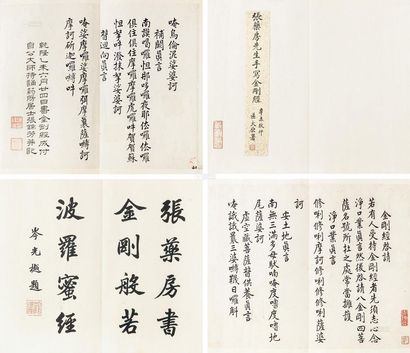 唵烏倫泥娑婆訶
補闕真言
南謨喝囉怛那哆囉夜耶佉囉佉囉
俱住俱住摩囉摩囉虎囉吽賀賀蘇
怛拏吽潑抹拏娑婆訶
普迴向真言
唵娑摩囉娑摩囉弭摩曩薩嚩訶
摩訶斫迦囉嚩吽
乾隆乙未六月廿四日書金剛經成付
自公大師持誦葯房居士張錦芳并記
張藥房先生手寫金剛經
辛未秋仲
區大原署
張藥房書
金剛般若
波羅蜜經
岑光樾題
金剛經啟請
若有人受持金剛經者先須志心念
淨口業真言然後啟請八金剛四菩
薩名號所在之處常當擁護
淨口業真言
修唎修唎摩訶修唎修修唎薩婆
訶
安土地真言
南無三滿多母馱喃唵度嚕度嚕地
尾薩婆訶
虛空藏菩薩普供養真言
唵誐誐曩三婆嚩韈日囉斛